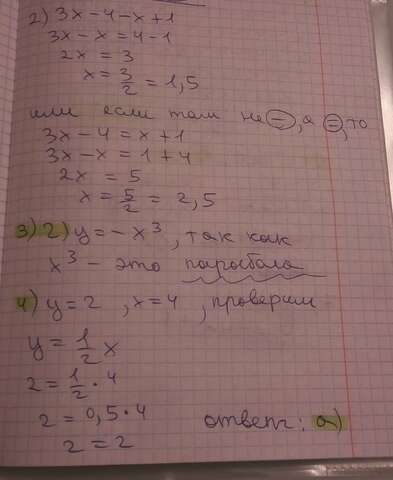 2) 3x-4-x+1
3x-x=4-1
2x = 3
x = 3/2 = 1,5
или если там не (-), а (=), то
3x-4 = x+1
3x-x = 1+4
2x = 5
x = 5/2 = 2,5
3) 2) y = -x³, так как
x³ - это парабола
4) y=2, x=4, проверим
y = 1/2 x
2 = 1/2 · 4
2 = 0,5·4
2 = 2
ответ: а)